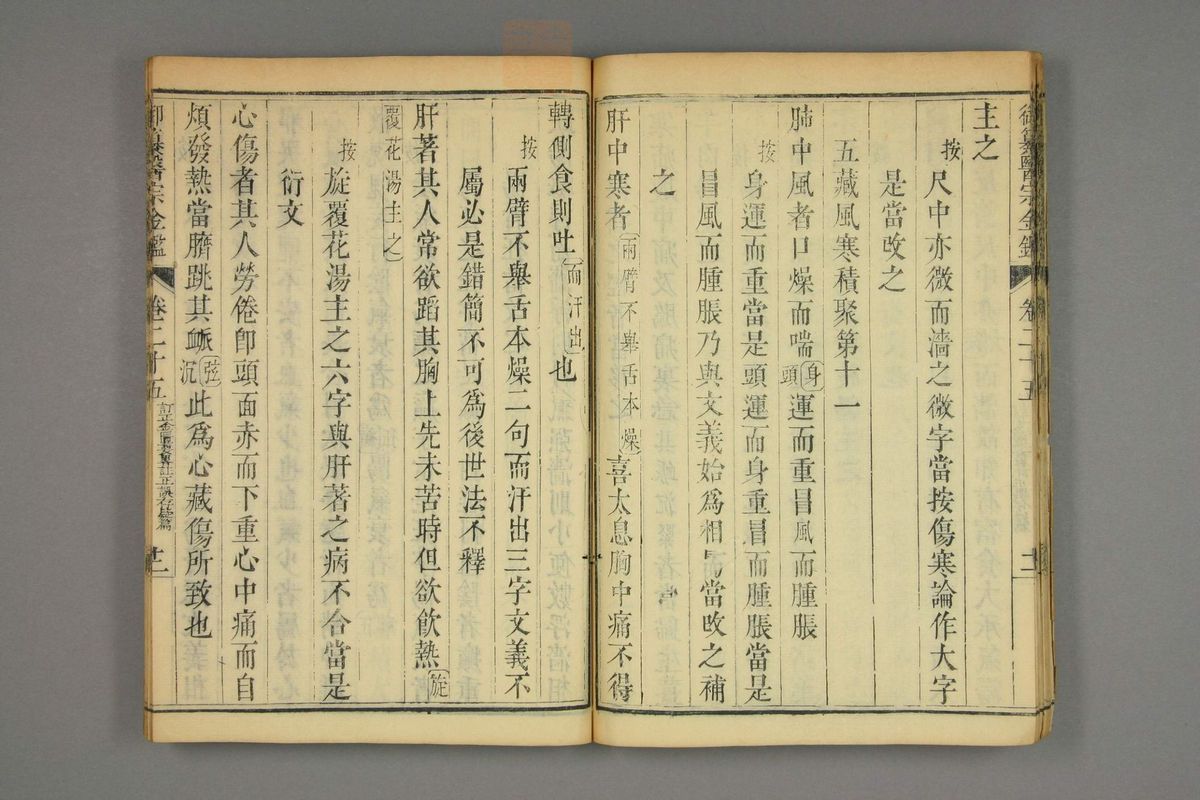 御纂醫宗金鑑 卷二十五
主之
按尺中亦微而濇之微字當按傷寒論作大字
是當改之
五藏風寒積聚第十一
肺中風者口燥而喘身頭運而重冒風而腫脹
按身運而重當是頭運而身重冒而腫脹當是
冒風而腫脹乃與文義始為相當改之補
之
肝中寒者兩臂不舉舌本燥喜太息胸中痛不得
轉側食則吐而汗出也
按兩臂不舉舌本燥二句而汗出三字文義不
屬必是錯簡不可為後世法不釋
肝著其人常欲蹈其胸上先未苦時但欲飲熱旋
覆花湯主之
按旋覆花湯主之六字與肝著之病不合當是
衍文
心傷者其人勞倦卽頭面赤而下重心中痛而自
煩發熱當臍跳其衇弦沉此為心藏傷所致也
御纂醫宗金鑑 卷二十五